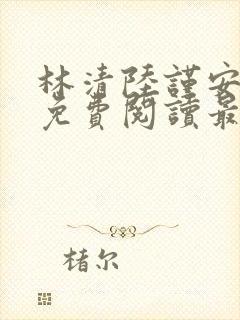 林清陸謹安
免費閱讀最
楮尔